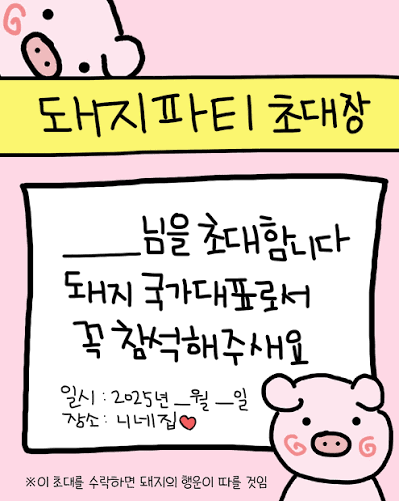 돼지파티 초대장
____님을 초대합니다
돼지 국가대표로서
꼭 참석해주새요
일시 : 2025년 __월 __일
장소 : 니네집❤️
※이 초대를 수락하면 돼지의 행운이 따를 것임